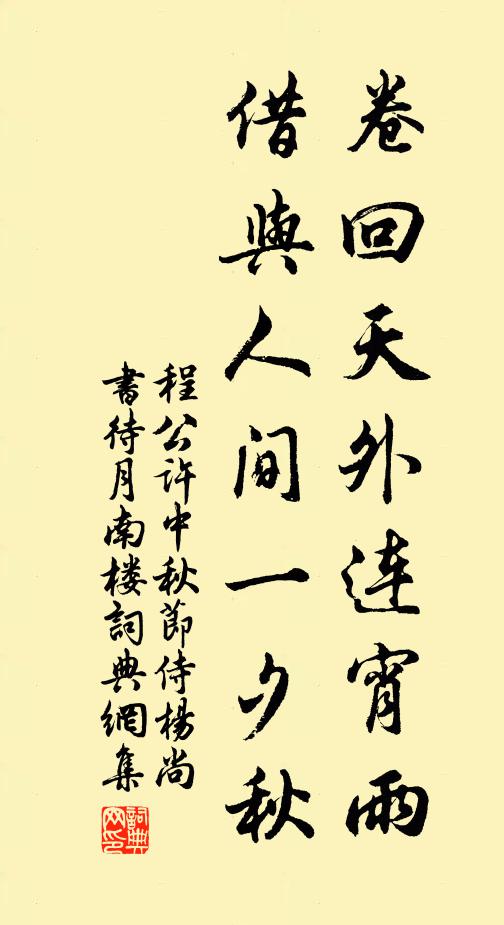 卷回天外連宵雨
借與人間一夕秋
程公許中秋節侍楊尚
書待月南楼詞典網集
詞典
网印